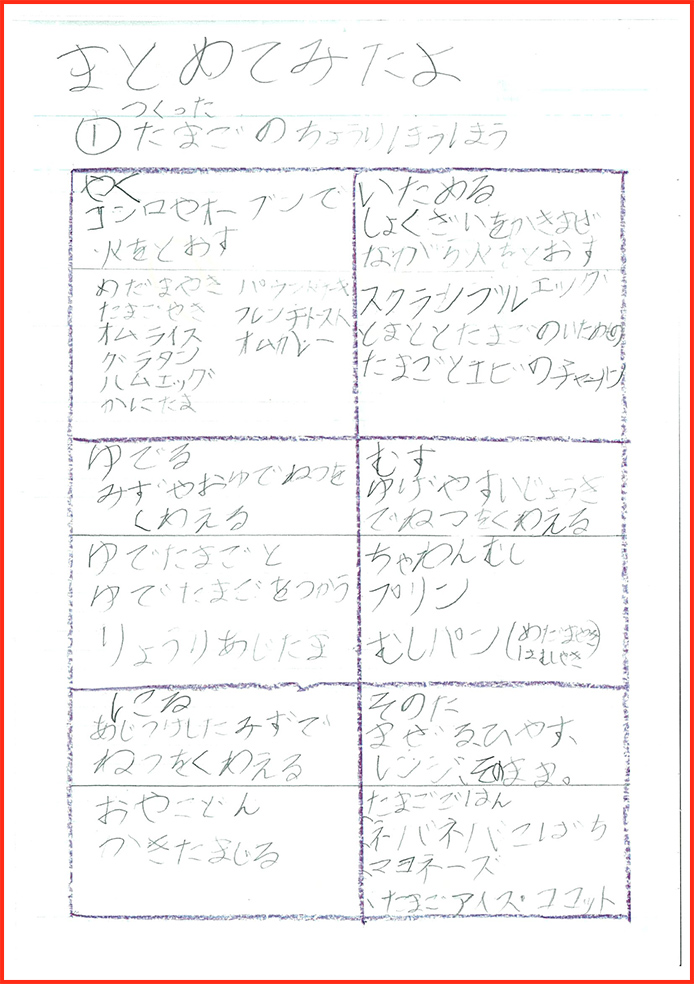 まとめてみたよ
つくった
① たまごのちょうりほうほう
やく
コンロやオーブンで
火をとおす
めだまやき
たまごやき
オムライス
グラタン
ハムエッグ
かにたま
パウンドケーキ
フレンチトースト
オムカレー
いためる
しょくざいをかきまぜ
ながら火をとおす
スクランブルエッグ
とまととたまごのいためもの
たまごとエビのチャーハン
ゆでる
みずやおゆでねつを
くわえる
ゆでたまごと
ゆでたまごをつかう
りょうりあじたま
むす
ゆげやすいじょうき
でねつをくわえる
ちゃわんむし
プリン
むしパン(めだまやき
はむしやき)
しこる
あじつけしたみずで
ねつをくわえる
おやこどん
かきたまじる
そのた
まぜる、ひやす、
レンジ、そのまま。
たまごごはん
ネバネバこばち
マヨネーズ
たまごアイス・ココット